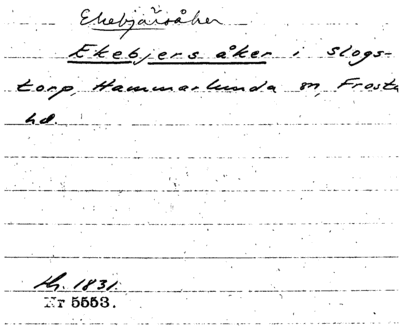 Ekebjärsåker
Ekebjers åker i Slogs-
torp, Hammarlunda sn, Frosta
hd.
Nr 5553.